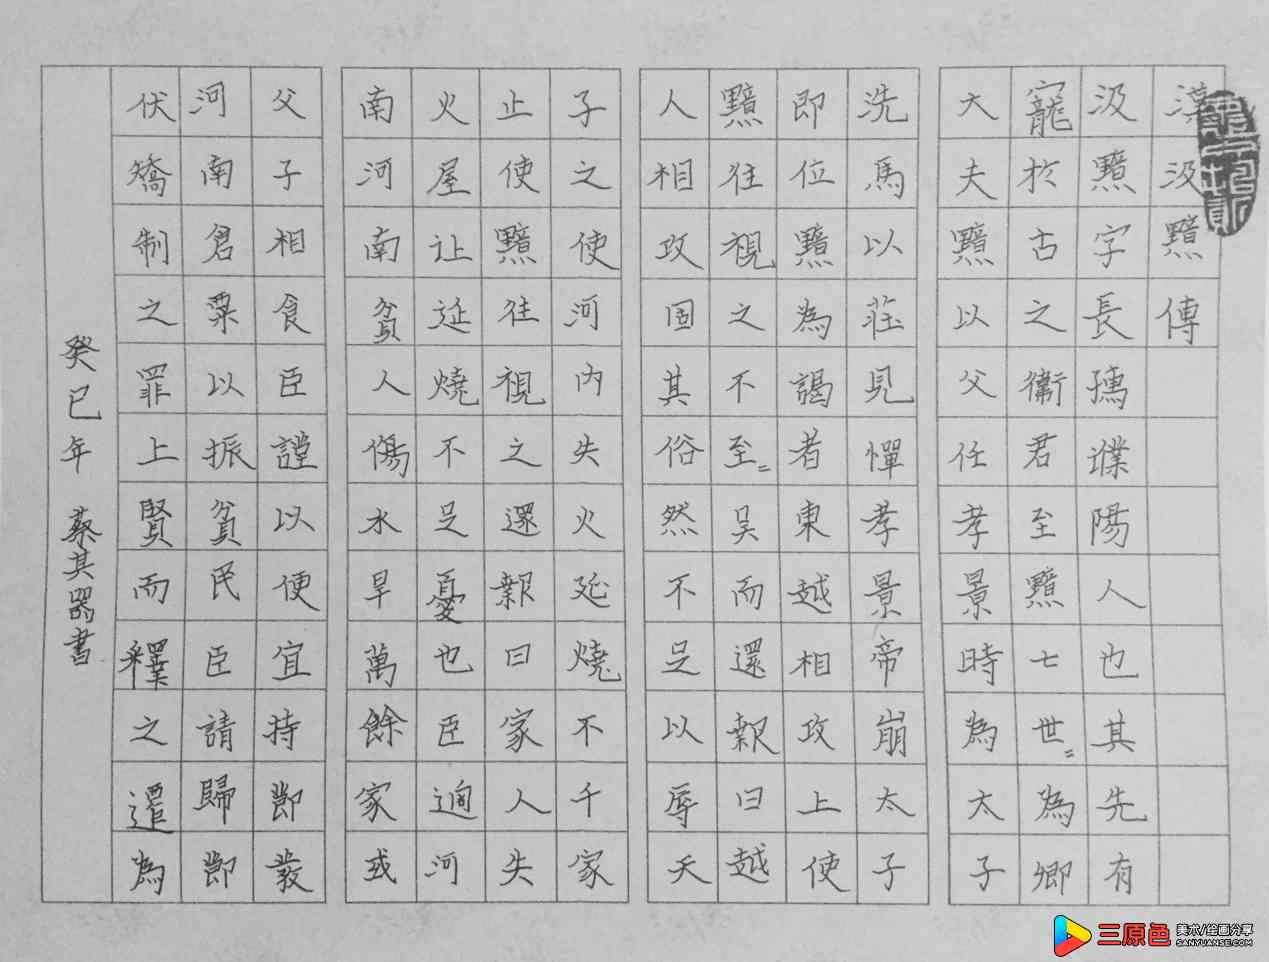 漢汲黯傳
汲黯字長孺濮陽人也其先有
寵於古之衛君至黯七世〻為卿
大夫黯以父任孝景時為太子
洗馬以莊見憚孝景帝崩太子
即位黯為謁者東越相攻上使
黯往視之不至〻吳而還報曰越
人相攻固其俗然不足以辱天
子之使河內失火延燒不千家
止使黯往視之還報曰家人失
火屋让延燒不足憂也臣過河
南河南貧人傷水旱萬餘家或
父子相食臣謹以便宜持節發
河南倉粟以振貧民臣請歸節
伏矯制之罪上賢而釋之遷為
癸巳年 蔡其器書
三原色 美术/绘画分享
SANYUANSE.COM